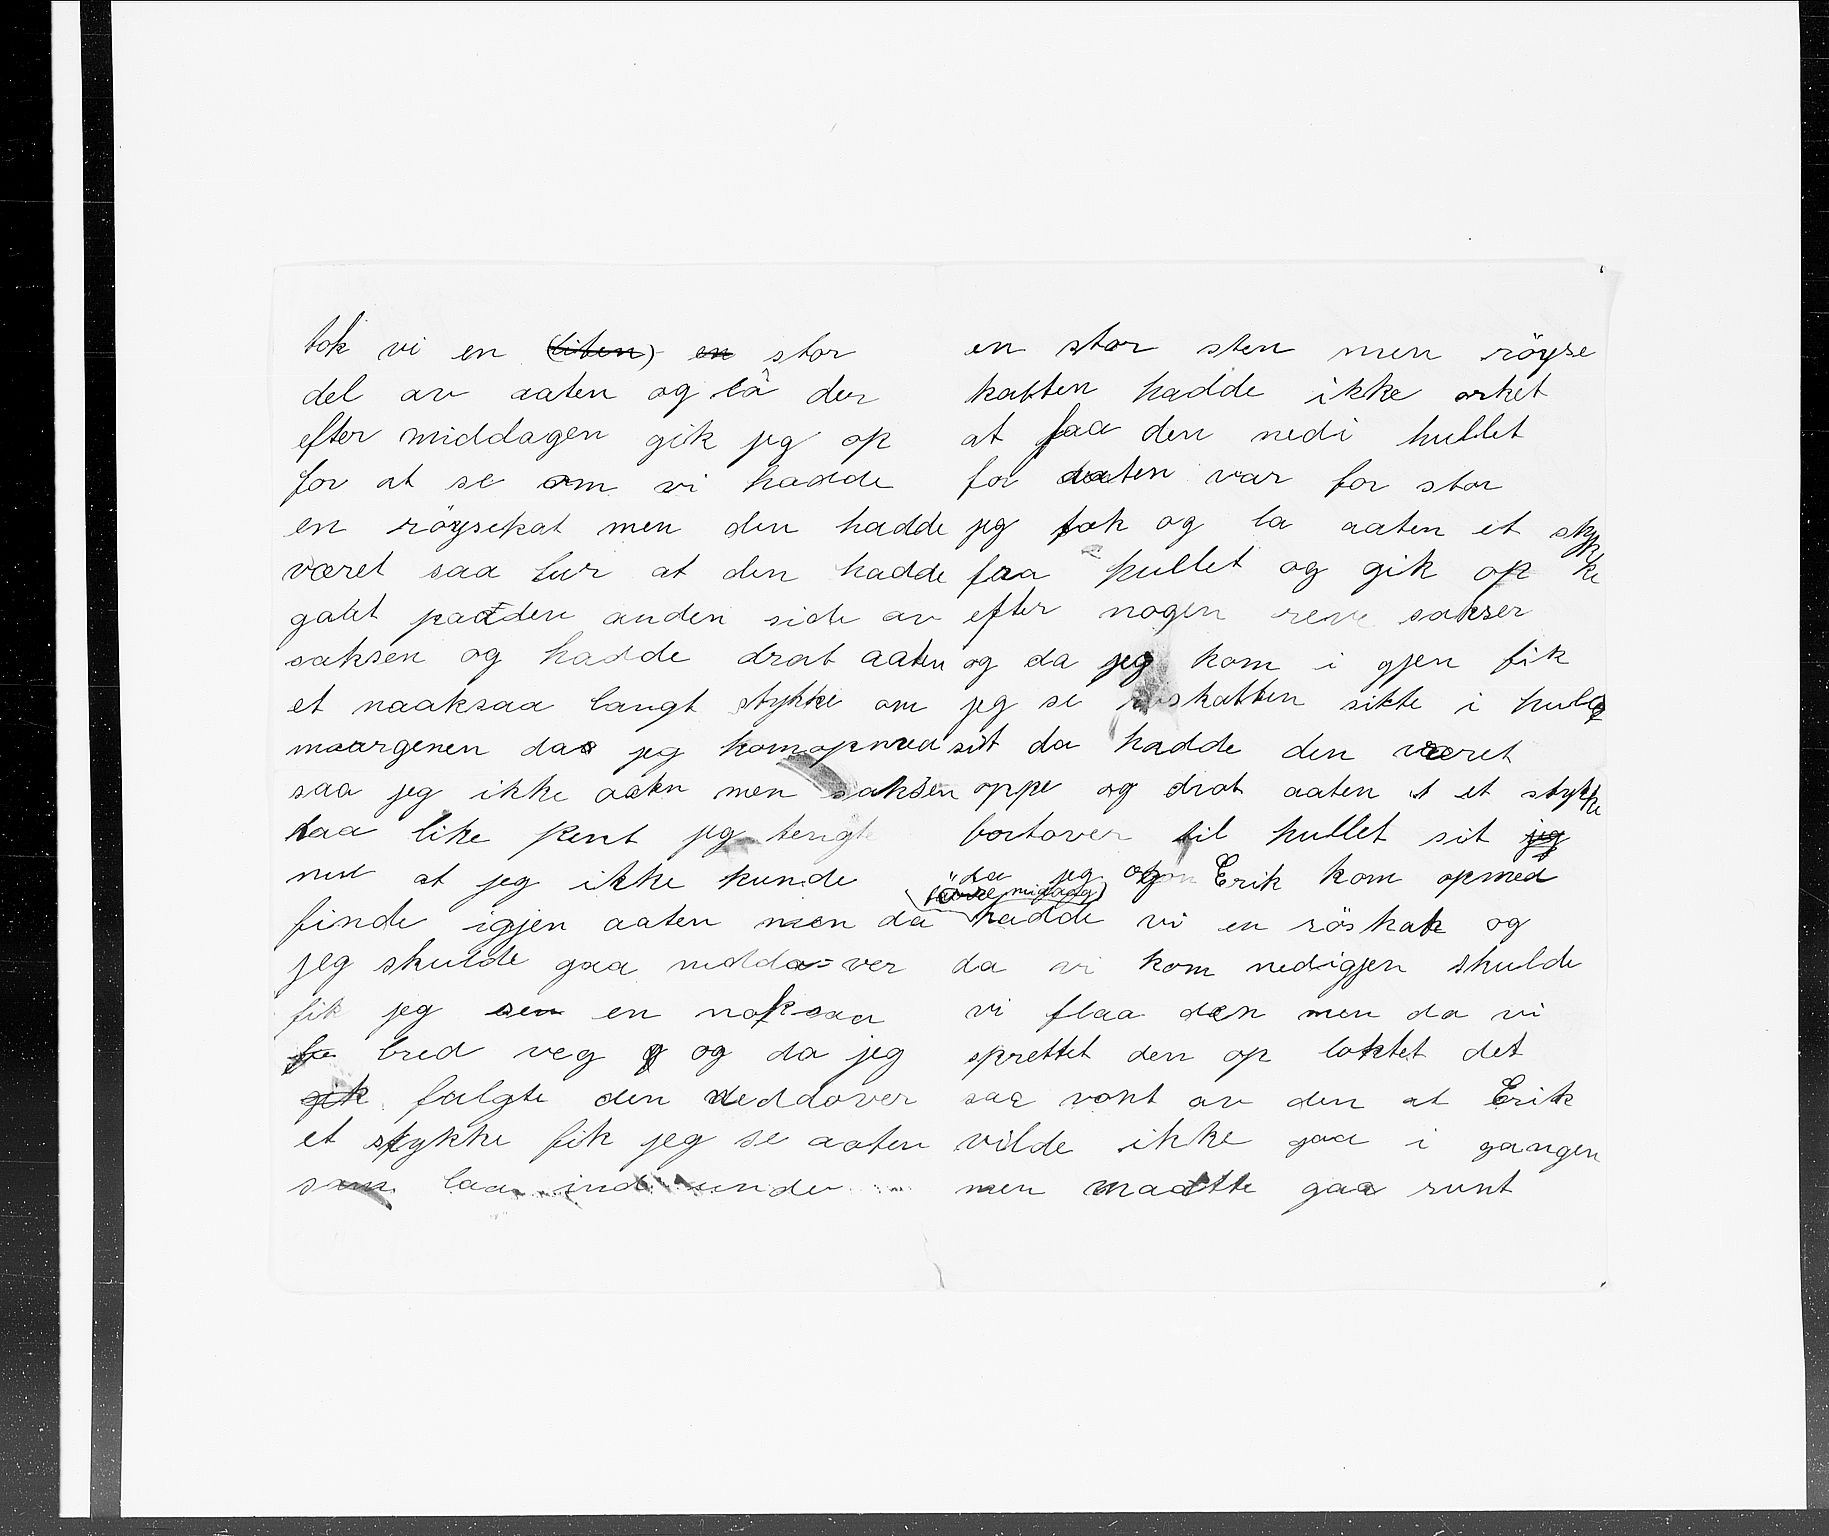 tok vi en (liten) en stor
del av aaten og la der
efter middagen gik jeg op
for at se om vi hadde
en röysekat men den hadde
været saa lur at den hadde
gaat paa den anden side av
saksen og hadde drat aaten
et naaksaa langt stykke om
maargenen da jeg kom opmed
saa jeg ikke aaten men saksen
laa like pent jeg tengte
ned at jeg ikke kunde
finde igjen aaten men da
jeg skulde gaa neddover
fik jeg sen en noksaa
fo bred veg og da jeg
gik fulgte den neddover
et stykke fik jeg se aaten
som laa ind under
en stor sten men röyse
katten hadde ikke orket
at faa den nedi hullet
for aaten var for stor
jeg tok og la aaten et stykke
fra hullet og gik op
efter nogen reve sakser
og da jeg kom i gjen fik
jeg se röiskatten sitte i hullet
sit da hadde den været
oppe og drat aaten et stykke
bortover til hullet sit jeg
da jeg og Erik kom opmed
(före midag)
hadde vi en röskat og
da vi kom nedigjen skulde
vi flaa den men da vi
sprettet den op loktet det
saa vont av den at Erik
vilde ikke gaa i gangen
men maatte gaa runt